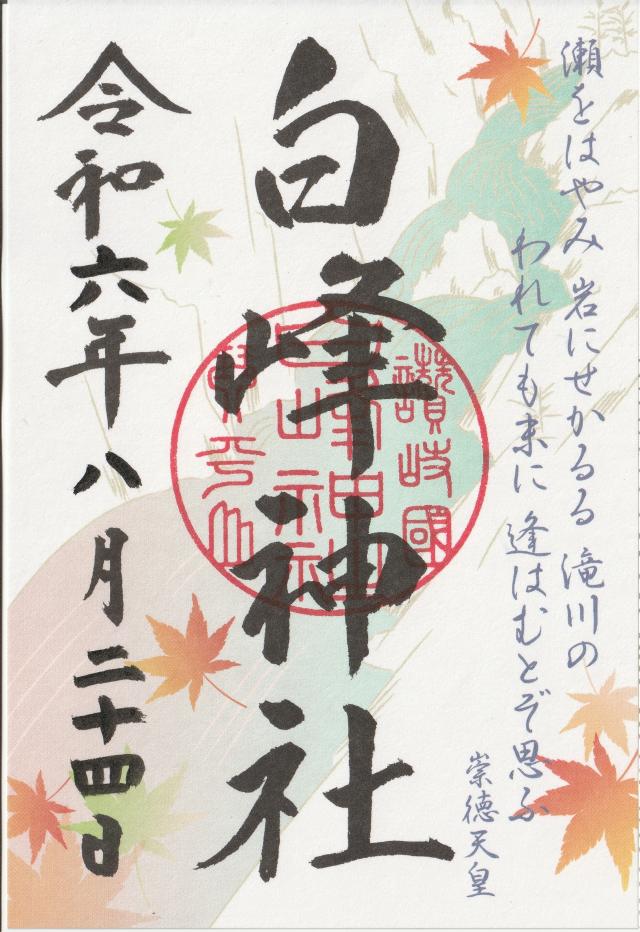 瀬をはやみ 岩にせかるる 滝川の
われても末に 逢はむとぞ思ふ
崇徳天皇
白峰神社
讃岐國
令和六年八月二十四日